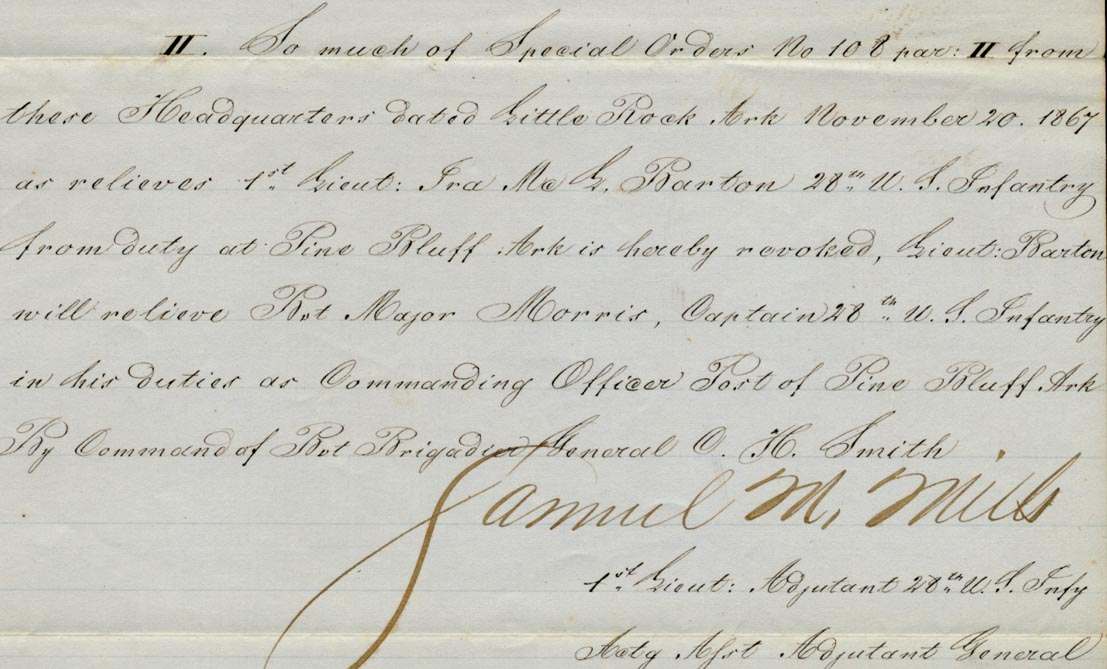 II. So much of Special Orders No 108 par: II from
these Headquarters dated Little Rock Ark November 20. 1867
as relieves 1st Lieut: Ira Mc L. Barton 28th U. S. Infantry
from duty at Pine Bluff Ark is hereby revoked, Lieut: Barton
will relieve Bvt Major Morris, Captain 28th U. S. Infantry
in his duties as Commanding Officer Post of Pine Bluff Ark
By Command of Bvt Brigadier General C. H. Smith
Samuel M. Mills
1st Lieut: Adjutant 28th U. S. Infy
Actg Asst Adjutant General